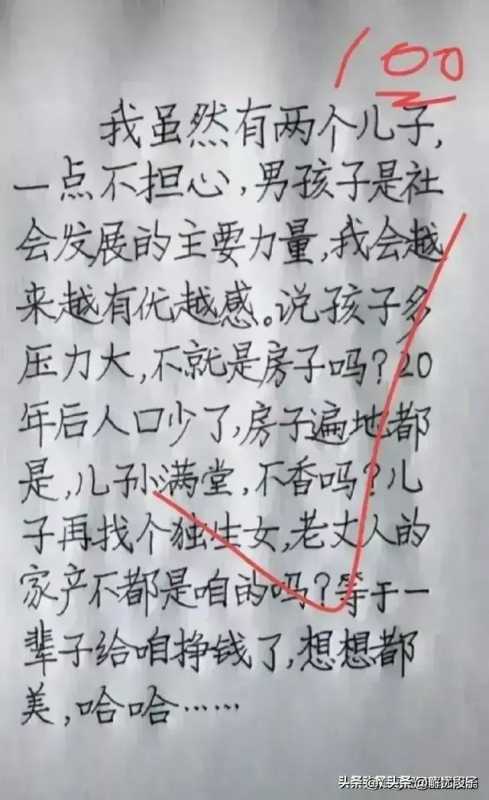 100
我虽然有两个儿子,
一点不担心,男孩子是社
会发展的主要力量,我会越
来越有优越感。说孩子多
压力大,不就是房子吗?20
年后人口少了,房子遍地都
是,儿孙满堂,不香吗?儿
子再找个独生女,老丈人的
家产不都是咱的吗?等于一
辈子给咱挣钱了,想想都
美,哈哈……
头条 @解忧段子